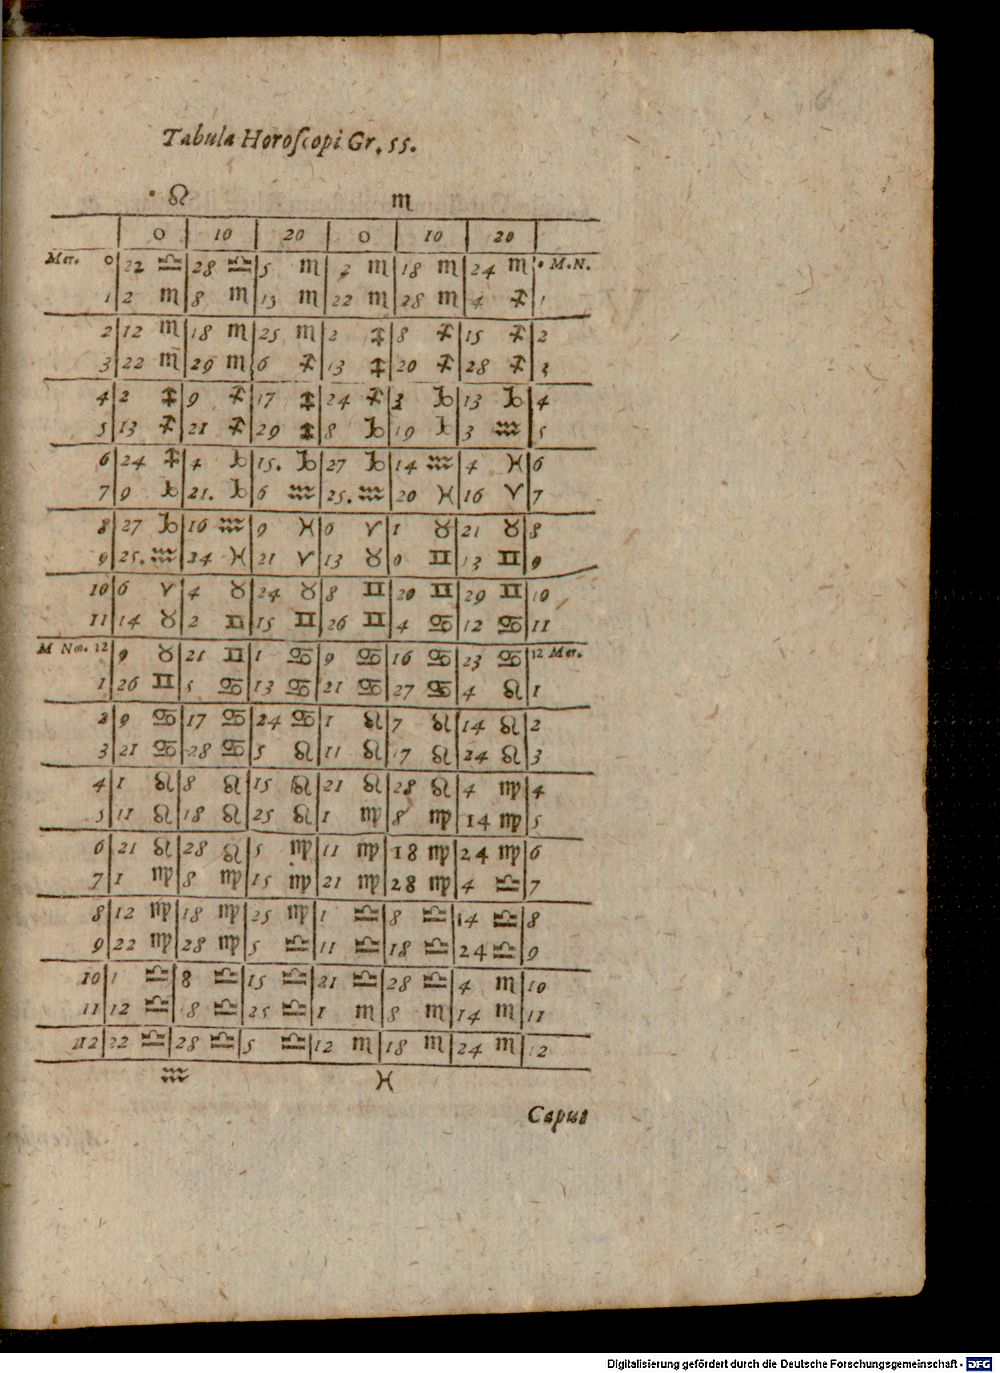 6
Tabula Horoſcopi Gr. 55.
♌ ♏
0 10 20 0 10 20
Mer. 0 22 ♎ 28 ♎ 5 ♏ 2 ♏ 18 ♏ 24 ♏ 0 M.N.
1 2 ♏ 8 ♏ 13 ♏ 22 ♏ 28 ♏ 4 ♐ 1
2 12 ♏ 18 ♏ 25 ♏ 2 ♐ 8 ♐ 15 ♐ 2
3 22 ♏ 29 ♏ 6 ♐ 13 ♐ 20 ♐ 28 ♐ 3
4 2 ♐ 9 ♐ 17 ♐ 24 ♐ 3 ♑ 13 ♑ 4
5 13 ♐ 21 ♐ 29 ♐ 8 ♑ 19 ♑ 3 ♒ 5
6 24 ♐ 4 ♑ 15. ♑ 27 ♑ 14 ♒ 4 ♓ 6
7 9 ♑ 21. ♑ 6 ♒ 25. ♒ 20 ♓ 16 ♈ 7
8 27 ♑ 16 ♒ 9 ♓ 0 ♈ 1 ♉ 21 ♉ 8
9 25. ♒ 24 ♓ 21 ♈ 13 ♉ 0 ♊ 13 ♊ 9
10 6 ♈ 4 ♉ 24 ♉ 8 ♊ 20 ♊ 29 ♊ 10
11 14 ♉ 2 ♊ 15 ♊ 26 ♊ 4 ♋ 12 ♋ 11
M No. 12 9 ♉ 21 ♊ 1 ♋ 9 ♋ 16 ♋ 23 ♋ 12 Mer.
1 26 ♊ 5 ♋ 13 ♋ 21 ♋ 27 ♋ 4 ♌ 1
2 9 ♋ 17 ♋ 24 ♋ 1 ♌ 7 ♌ 14 ♌ 2
3 21 ♋ 28 ♋ 5 ♌ 11 ♌ 17 ♌ 24 ♌ 3
4 1 ♌ 8 ♌ 15 ♌ 21 ♌ 28 ♌ 4 ♍ 4
5 11 ♌ 18 ♌ 25 ♌ 1 ♍ 8 ♍ 14 ♍ 5
6 21 ♌ 28 ♌ 5 ♍ 11 ♍ 18 ♍ 24 ♍ 6
7 1 ♍ 8 ♍ 15 ♍ 21 ♍ 28 ♍ 4 ♎ 7
8 12 ♍ 18 ♍ 25 ♍ 1 ♎ 8 ♎ 14 ♎ 8
9 22 ♍ 28 ♍ 5 ♎ 11 ♎ 18 ♎ 24 ♎ 9
10 1 ♎ 8 ♎ 15 ♎ 21 ♎ 28 ♎ 4 ♏ 10
11 12 ♎ 18 ♎ 25 ♎ 1 ♏ 8 ♏ 14 ♏ 11
12 22 ♎ 28 ♎ 5 ♎ 12 ♏ 18 ♏ 24 ♏ 12
♒ ♓
Caput
Digitalisierung gefördert durch die Deutsche Forschungsgemeinschaft - DFG